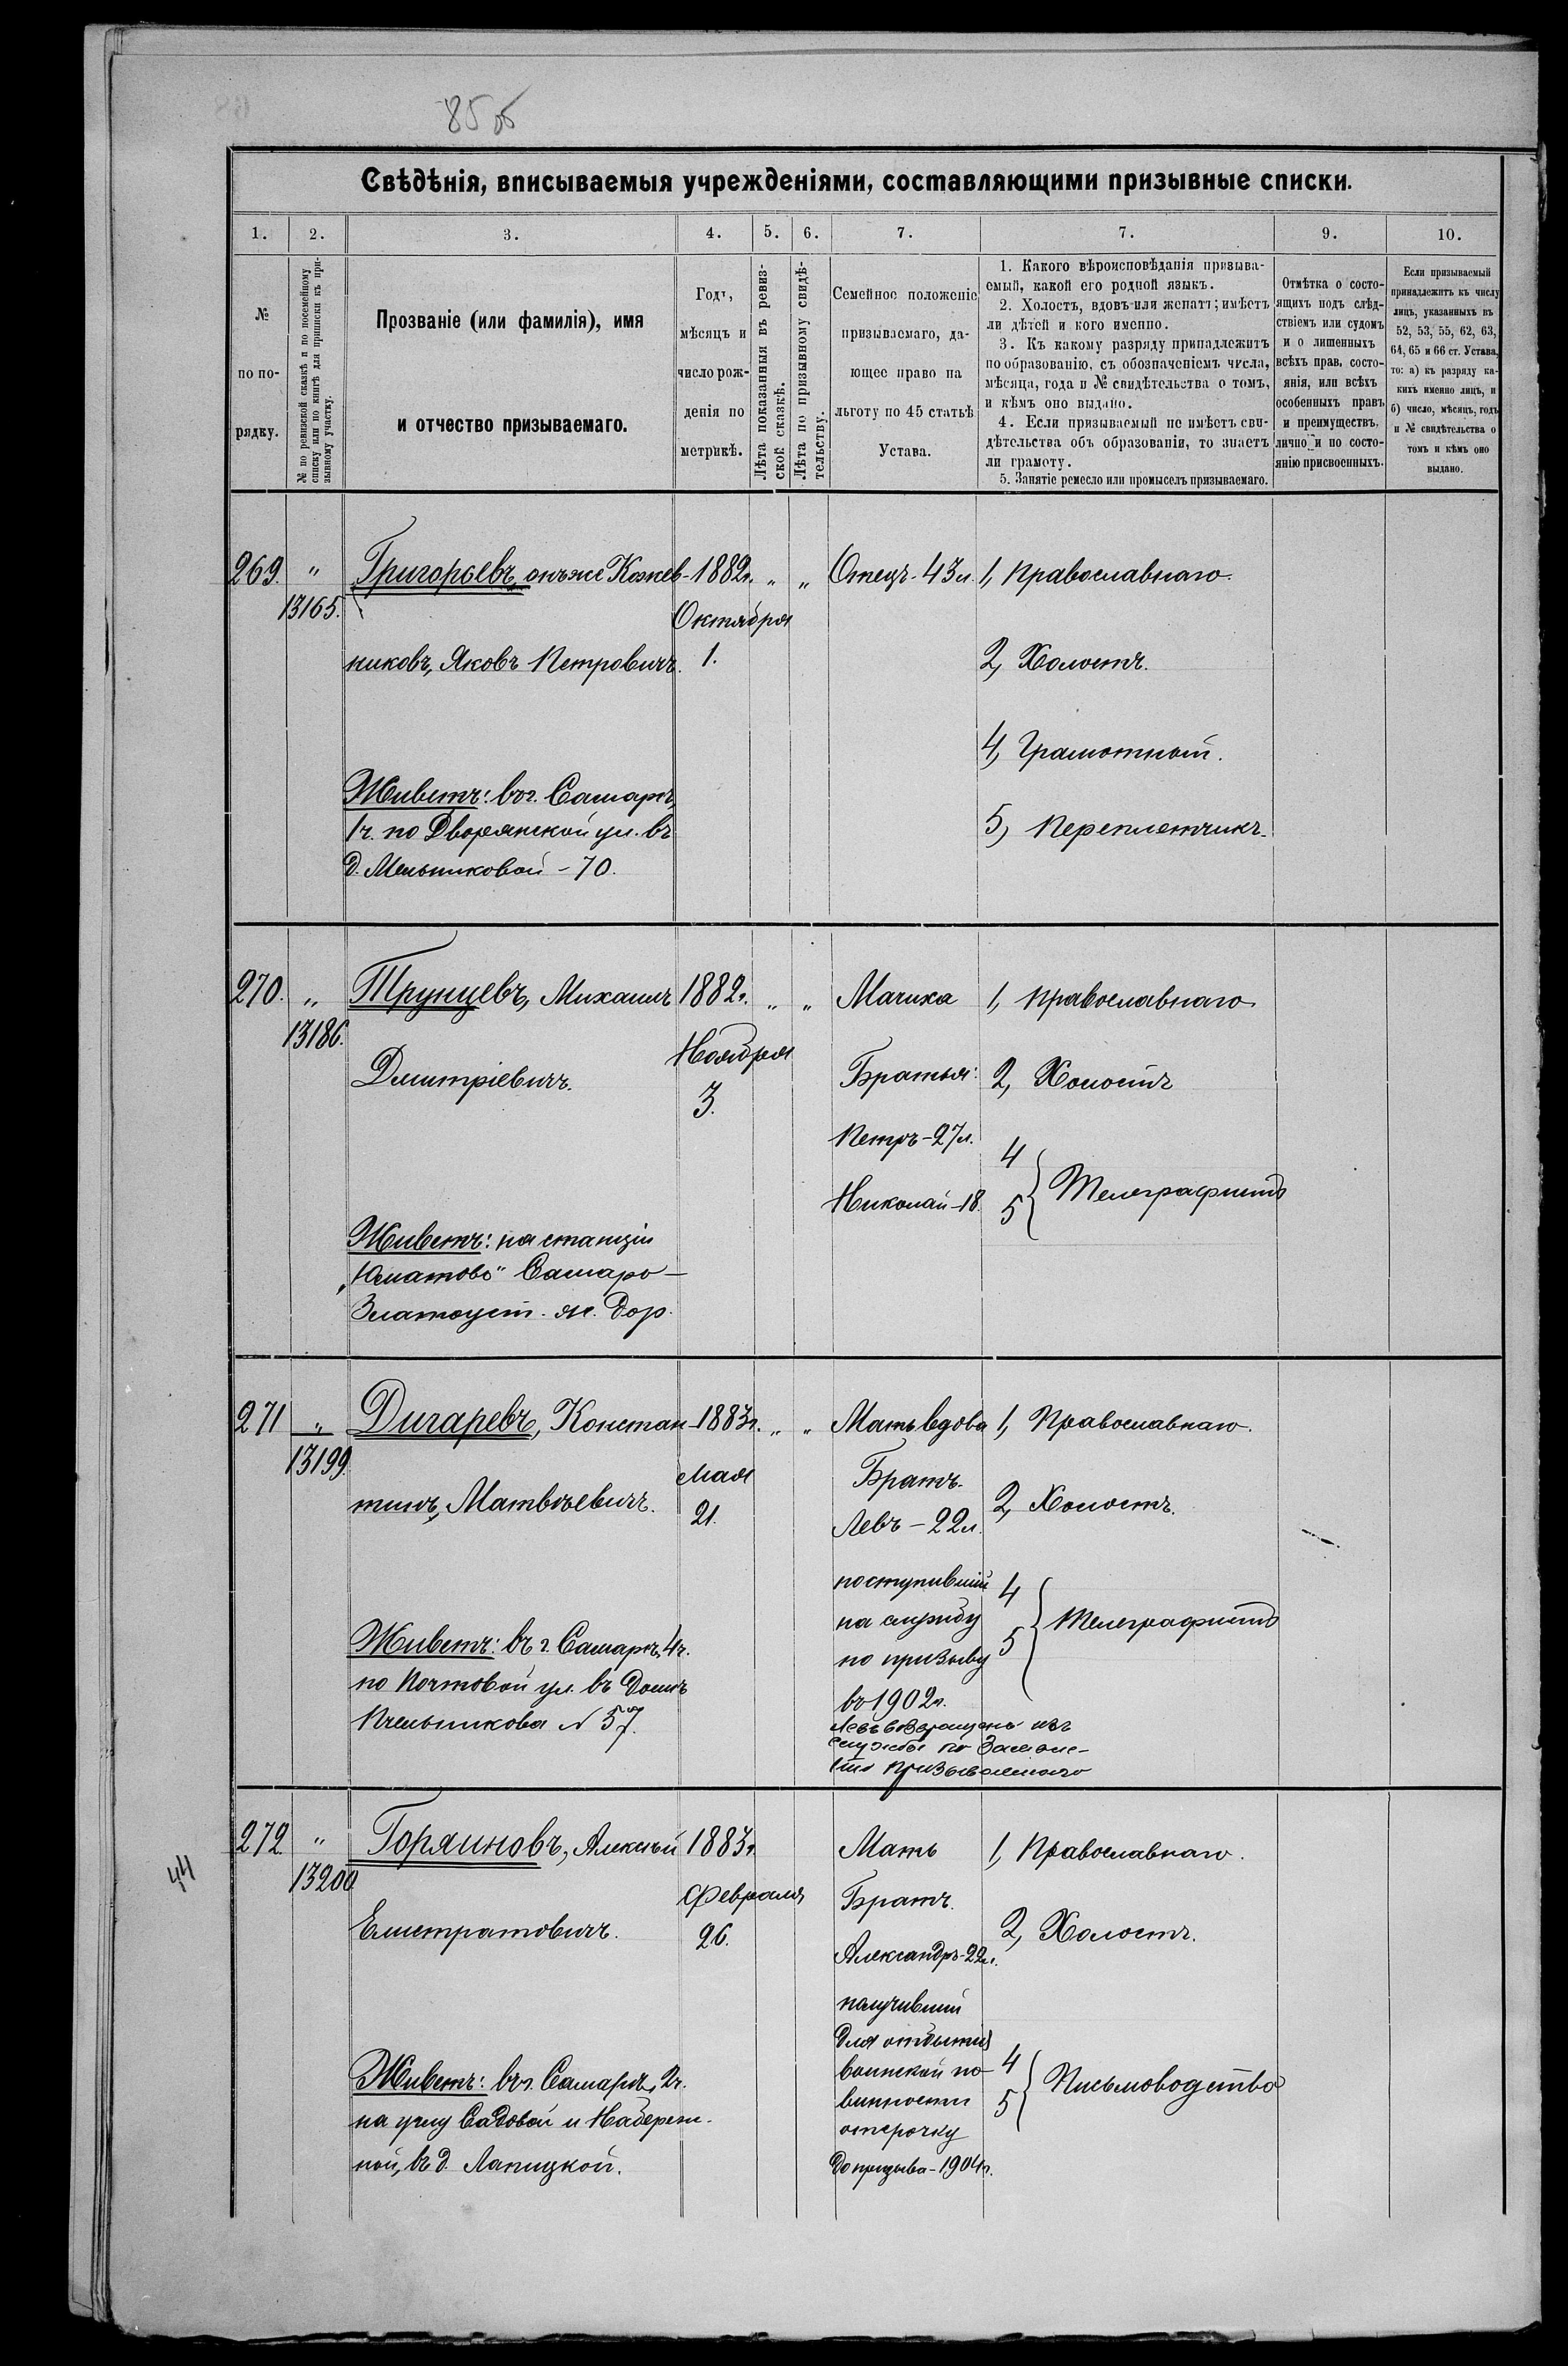 85 об
Свѣдѣнія, вписываемыя учрежденіями, составляющими призывные списки.
1. 2. 3. 4. 5. 6. 7. 7. 9. 10.
№
по по-
рядку.
№ по ревизской сказкѣ и по посемейному
списку или по книгѣ для приписки къ при-
зывному участку.
Прозваніе (или фамилія), имя
и отчество призываемаго.
Годъ,
мѣсяцъ и
число рож-
денія по
метрикѣ.
Лѣта показанныя въ ревиз-
ской сказкѣ.
Лѣта по призывному свидѣ-
тельству.
Семейное положеніе
призываемаго, да-
ющее право на
льготу по 45 статьѣ
Устава.
1. Какого вѣроисповѣданія призыва-
емый, какой его родной языкъ.
2. Холостъ, вдовъ или женатъ; имѣетъ
ли дѣтей и кого именно.
3. Къ какому разряду принадлежитъ
по образованію, съ обозначеніемъ числа,
мѣсяца, года и № свидѣтельства о томъ,
и кѣмъ оно выдано.
4. Если призываемый не имѣетъ сви-
дѣтельства объ образованіи, то знаетъ
ли грамоту.
5. Занятіе ремесло или промыселъ призываемаго.
Отмѣтка о состо-
ящихъ подъ слѣд-
ствіемъ или судомъ
и о лишенныхъ
всѣхъ прав, состо-
янія, или всѣхъ
особенныхъ правъ
и преимуществъ,
лично и по состо-
янію присвоенныхъ.
Если призываемый
принадлежитъ къ числу
лицъ, указанныхъ въ
52, 53, 55, 62, 63,
64, 65 и 66 ст. Устава,
то: а) къ разряду ка-
кихъ именно лицъ, и
б) число, мѣсяцъ, годъ
и № свидѣтельства о
томъ и кѣмъ оно
выдано.
269. "
13165.
Григорьевъ, онъ же Кожев-
никовъ, Яковъ Петровичъ.
Живетъ: въ г. Самарѣ,
1 ч. по Дворянской ул. въ
д. Мельниковой - 70.
1882 г.
Октября
1.
" "
Отецъ - 43 л.
1, Православнаго.
2, Холостъ.
4, Грамотный.
5, Переплетчикъ.
270. "
13186.
Трунцевъ, Михаилъ
Дмитріевичъ.
Живетъ: на станціи
„Юматово" Самаро-
Златоуст. ж. дор.
1882 г.
Ноября
3.
" "
Мачиха
Братья:
Петръ - 27 л.
Николай - 18.
1, Православнаго
2, Холостъ
4
5 } Телеграфистъ
271 "
13199.
Дигаревъ, Констан-
тинъ, Матвѣевичъ.
Живетъ: въ г. Самарѣ, 4 ч.
по Почтовой ул. въ домѣ
Пчельникова № 57.
1883 г.
Мая
21.
" "
Мать вдова
Братъ.
Левъ - 22 л.
поступившій
на службу
по призыву
въ 1902 г.
Левъ возвращенъ изъ
службы по
призываемаго
1, Православнаго.
2, Холостъ.
4
5 } Телеграфистъ
44
272. "
13200
Горяиновъ, Алексѣй
Елистратовичъ.
Живетъ: въ г. Самарѣ, 2 ч.
на углу Садовой и Набереж-
ной, въ д. Лапицкой.
1883 г.
Февраля
26.
Мать
Братъ.
Александръ - 22 л.
получившій
для отбытія
воинской по-
винности
отсрочку
до призыва - 1904 г.
1, Православнаго.
2, Холостъ.
4
5 } Письмоводство